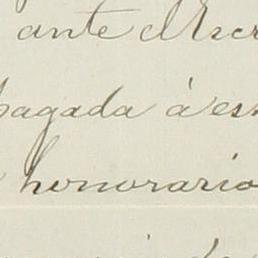 ante el Secr
pagada á es
honorario